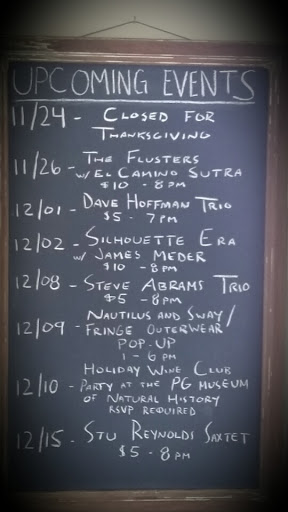 UPCOMING EVENTS
11/24 - CLOSED FOR
THANKSGIVING
11/26 - THE FLUSTERS
W/ EL CAMINO SUTRA
$10 - 8PM
12/01 - DAVE HOFFMAN TRIO
$5 - 7PM
12/02 - SILHOUETTE ERA
W/ JAMES MEDER
$10 - 8PM
12/08 - STEVE ABRAMS TRIO
$5 - 8PM
12/09 - NAUTILUS AND SWAY/
FRINGE OUTERWEAR
POP-UP
1 - 6 PM
HOLIDAY WINE CLUB
12/10 - PARTY AT THE PG MUSEUM
OF NATURAL HISTORY
RSVP REQUIRED
12/15 - STU REYNOLDS SAXTET
$5 - 8PM